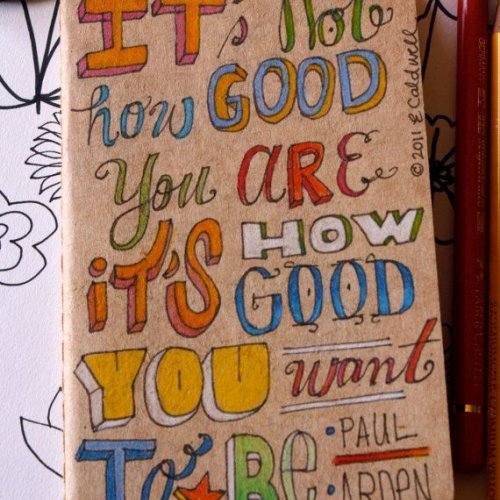 IT's Not
how GOOD
You ARE
iT'S HOW
GOOD
YOU want
To BE • PAUL
• ARDEN
© 2011 E Caldwell